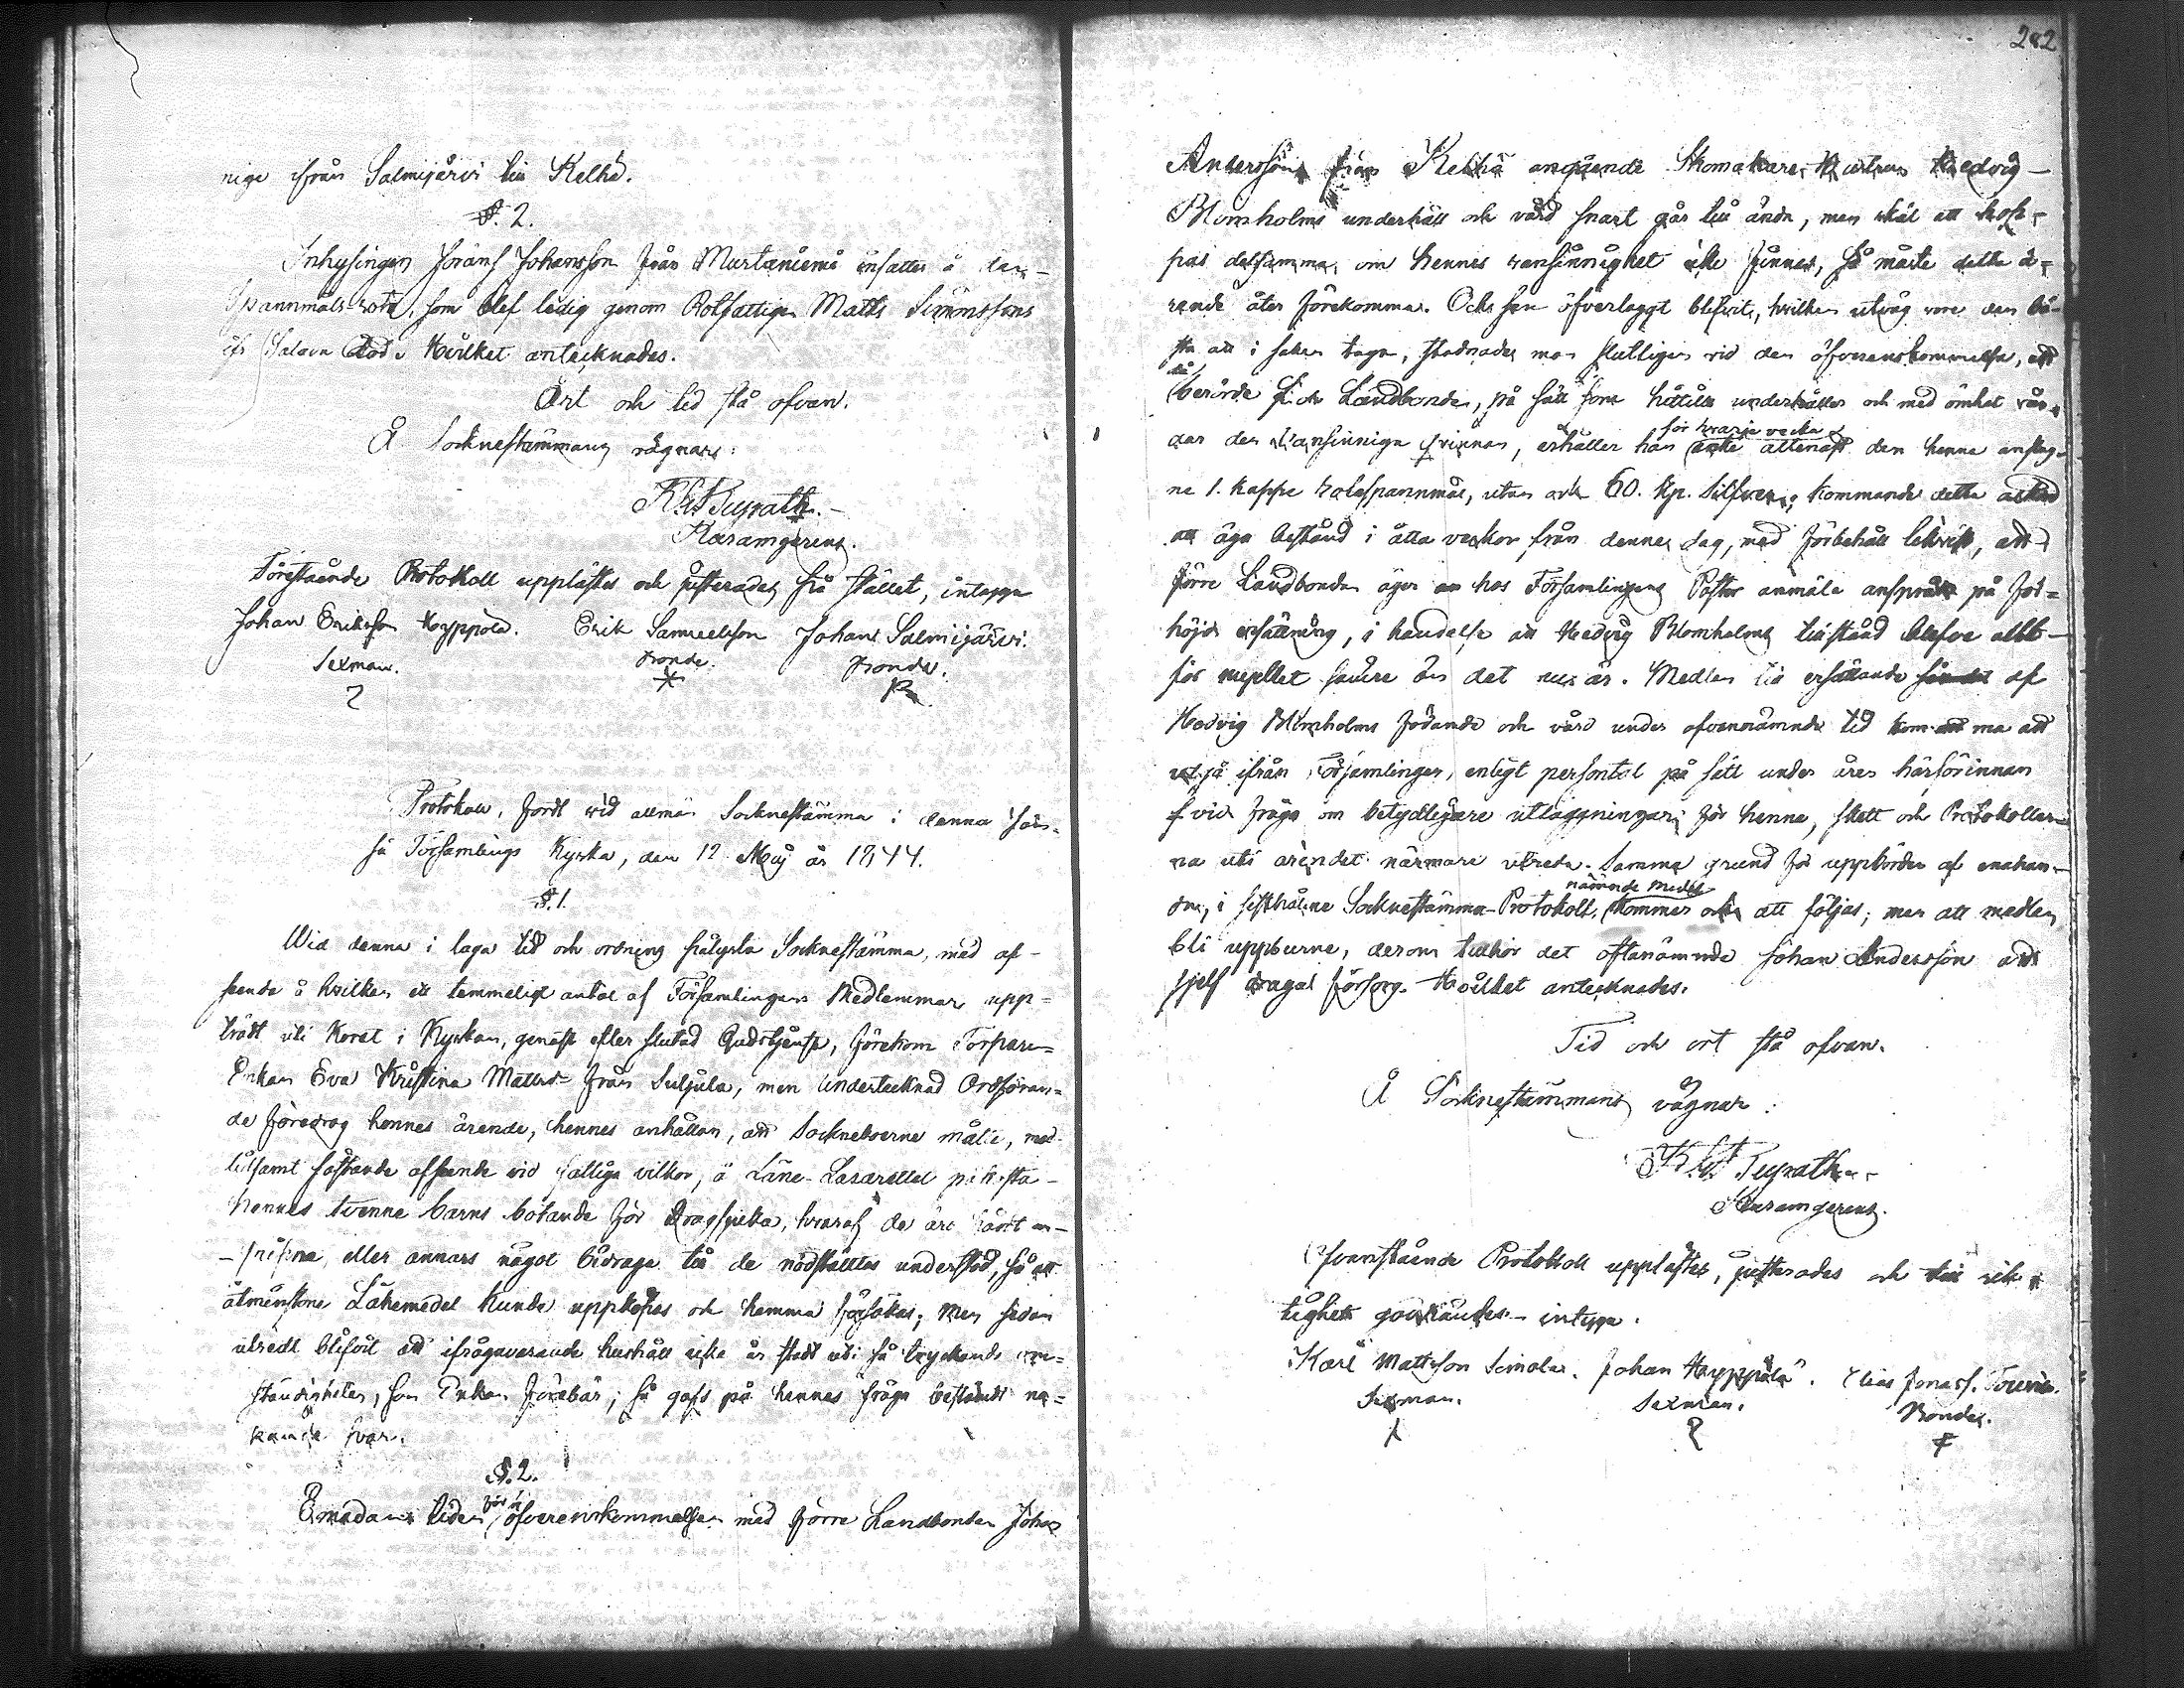 nige ifrån Salmijärvi till Kelhä.
§. 2.
Inhysingen Jöranſ Johansſon från Murtaniemi inſattes å den
Spannmåls-rota, ſom blef ledig genom Rotfattigen Matts Simonsſons
ifr. Salava död. Hvilket antecknades.
Ort och tid ſtå ofvan.
Å Socknestämmans vägnar:
Teyrath.
Föreſtående Protokoll uppläſtes och juſterades på ſtället, intyga
Johan Eriksſon Hyppölä. Erik Samuelsſon Johan Salmijärvi.
Sexman. Bonde. Bonde.
Protokoll, fördt vid allmän Socknestämma i denna
ſå Församlings Kyrka, den 12 Maj år 1844.
§. 1.
Wid denna i laga tid och ordning pålysta Socknestämma, med af-
ſeende å hvilken ett temmeligt antal af Församlingens Medlemmar upp=
trädt uti Koret i Kyrkan, genaſt efter ſlutad Gudstjenſt, förekom Torpare=
Enkan Eva Kriſtina Mattsd:r från Suljula, men Undertecknad Ordföran=
de föredrog hennes ärende, hennes anhållan, att Sockneboerne måtte, med
fäſtande afſeende vid fattiga vilkor, å Läns-Lasarettet
hennes tvenne barns botande för dragſjuka, hvaraf de äro hårdt an-
-gripne, eller annars något bidraga till de nödſtälltes underſtöd, ſå att
åtminſtone Läkemedel kunde uppköpas och hemma förſökas; men ſedan
utredt blifvit att ifrågavarande hushåll icke är ſtadt uti ſå tryckande om=
ſtändigheter, ſom Enkan förebär; ſå gafs på hennes fråga beſtämdt ne=
kande ſvar.
§. 2.
Emedan tiden för öfverenskommelſen med förre Landbonden Johan
282
Andersſon från Kelhä angående Skomakare-Huſtrun Hedvig
Blomholms underhåll och vård ſnart går till ända, men ſkäl att hop-
pas detſamma om hennes vanſinnighet icke finnes, ſå måſte detta ä=
rende åter förekomma. Och ſen öfverlaggt blifvit, hvilken utväg vore den bä-
ſta att i ſaken taga, ſtadnades man ſlutligen vid den öfverenskommelſe, att
då berörde Landbonde, på ſätt ſom hittills underhåller och med ömhet vår-
dar den vanſinniga qvinnan, erhåller han för hvarje vecka icke allenaſt den henne anſlag-
ne 1. kappe rotſpannmål, utan och 60. Kp. Silfver; kommande detta ackord
att äga beſtånd i åtta veckor från denna dag, med förbehåll likväl, att
förre Landbonden äger att hos Församlingens Paſtor anmäla anſpråk på för=
höjd erſättning, i händelſe att Hedvig Blomholms tillſtånd blefve allt-
för mycket ſvårare än det nu är. Medlen till erſättande af
Hedvig Blomholms födande och vård under ofvannämnde tid komma att
utgå ifrån Församlingen, enligt perſontal på ſätt under åren härförinnan
vid fråga om betydligare utläggningar för henne, ſkett och Protokoller-
na uti ärendet närmare utreda. Samma grund för uppbörden af enahan-
da, i ſiſthållne Socknestämma-Protokoll, nämnde medel kommer ock att följas; men att medlen
bli uppburne, derom tillhör det oftanämnde Johan Andersſon att
ſjelf draga förſorg. Hvilket antecknades.
Tid och ort ſtå ofvan.
Å Socknestämmans vägnar:
Teyrath
Ofvanſtående Protokoll uppläſtes, juſterades och till rik=
tighet godkändes – intyga.
Karl Mattsſon Simola. Johan Hyppölä. Elias Jonasſ.
Sexman. Sexman. Bonde.